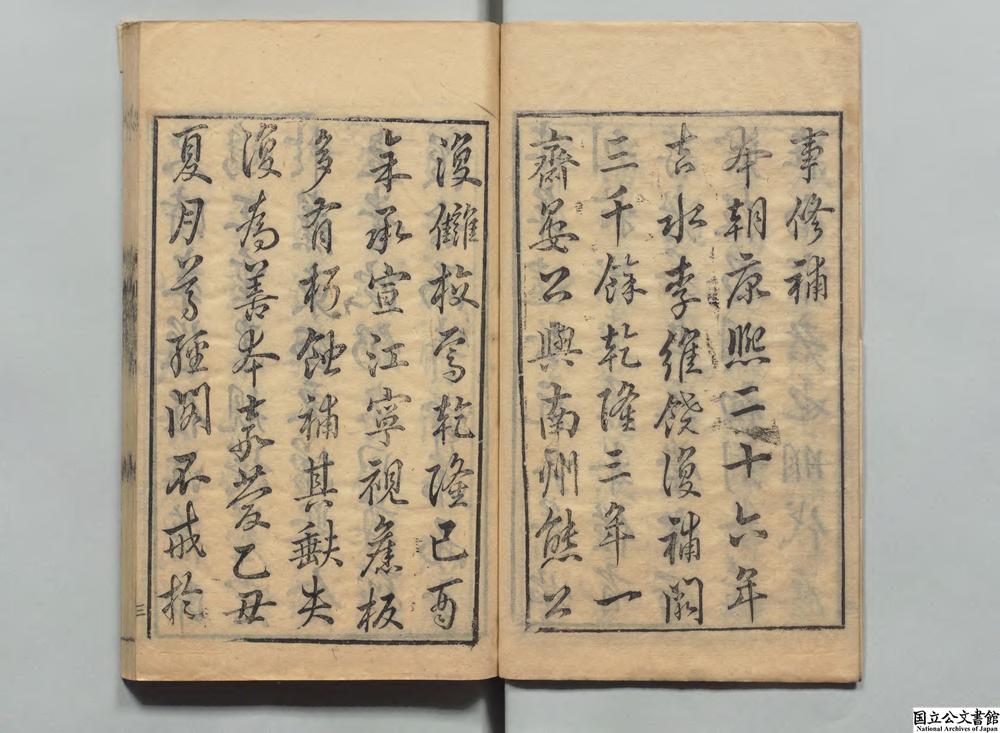 事修補
本朝康熙二十六年
吉水李維饒復補闕
三千餘乾隆三年一
齋晏公與南州熊公
復讎校焉乾隆己酉
年承宣江寧視舊板
多有朽蝕補其缺失
復為善本嘉慶乙丑
夏月尊經閣不戒於
三
国立公文書館
National Archives of Japan